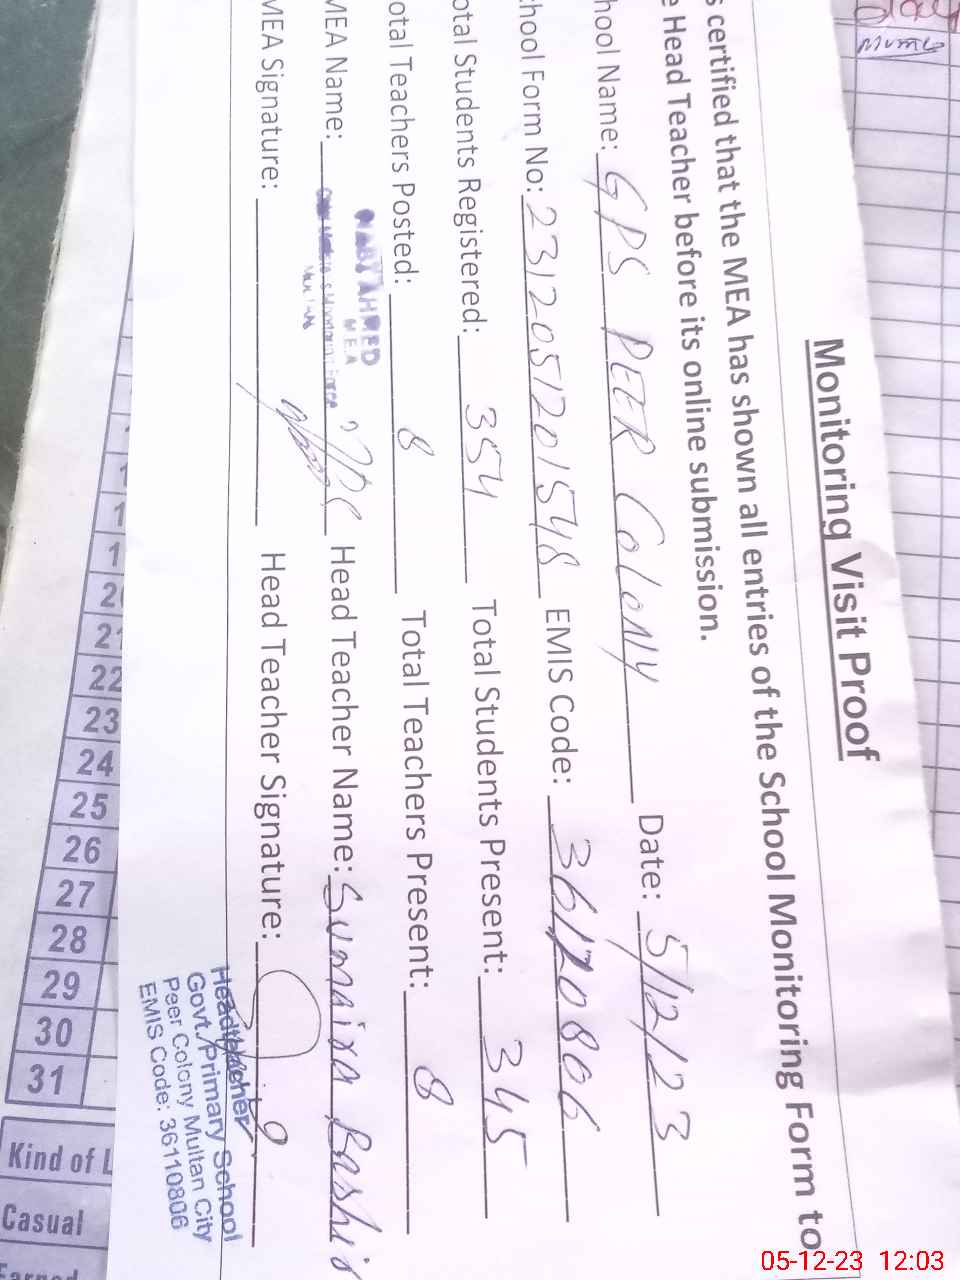 Monitoring Visit Proof
s certified that the MEA has shown all entries of the School Monitoring Form to
e Head Teacher before its online submission.
hool Name: GPS PEER Colony Date: 5/12/23
chool Form No: 231205120154 EMIS Code: 36110806
otal Students Registered: 354 Total Students Present: 345
otal Teachers Posted: 8 Total Teachers Present: 8
MEA Name: AHMED MEA Head Teacher Name: Sumaira Bashir
MEA Signature: Head Teacher Signature:
Headteacher
Govt. Primary School
Peer Colony Multan City
EMIS Code: 36110806
22
23
24
25
26
27
28
29
30
31
Kind of L
Casual
Earned
05-12-23 12:03